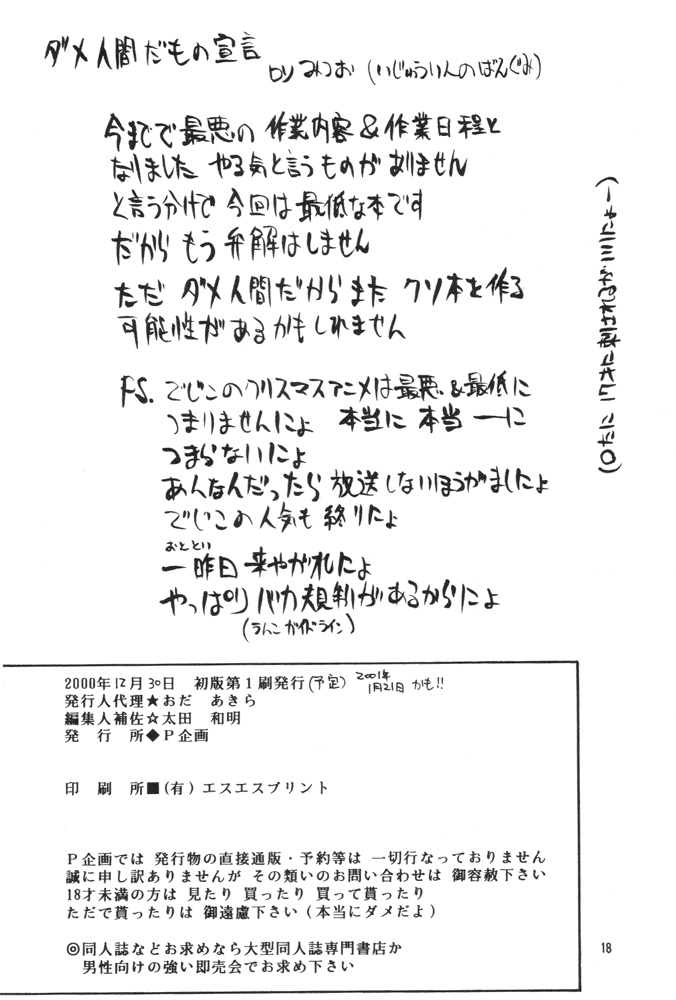 ダメ人間だもの宣言
by みつお (いじゅういんのばんぐみ)
今までで最悪の 作業内容&作業日程と
なりました やる気と言うものがありません
と言う分けで 今回は最低な本です
だから もう 弁解はしません
ただ ダメ人間だからまた クソ本を作る
可能性があるかもしれません
P.S. でじこのクリスマスアニメは最悪&最低に
つまりませんにょ 本当に 本当ーーに
つまらないにょ
あんなんだったら 放送しないほうがましにょ
でじこの人気も終りにょ
おととい
一昨日来やがれにょ
やっぱり バカ規制があるからにょ
(うんこ ガイドライン)
2000年12月30日 初版第1刷発行(予定) 2001年
1月21日 かも!!
発行人代理★おだ あきら
編集人補佐☆太田 和明
発 行 所◆P企画
印 刷 所■(有)エスエスプリント
P企画では 発行物の直接通版・予約等は 一切行なっておりません
誠に申し訳ありませんが その類いのお問い合わせは 御容赦下さい
18才未満の方は 見たり 買ったり 買って貰ったり
ただで貰ったりは 御遠慮下さい(本当にダメだよ)
◎同人誌などお求めなら大型同人誌専門書店か
男性向けの強い即売会でお求め下さい
18